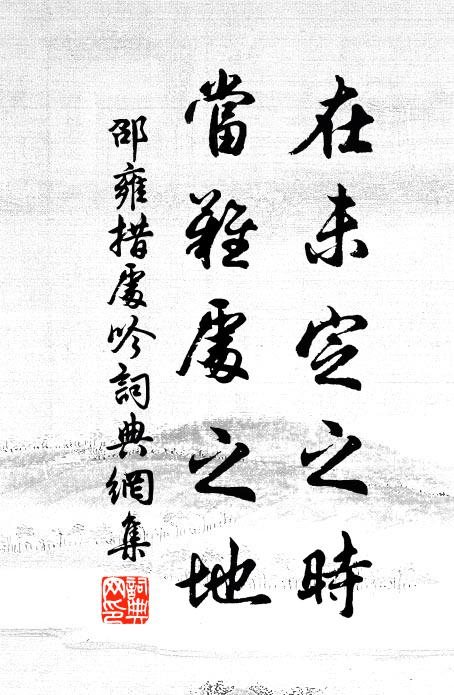 在未定之時
當難處之地
邵雍措處吟詞典網集
詞典网印